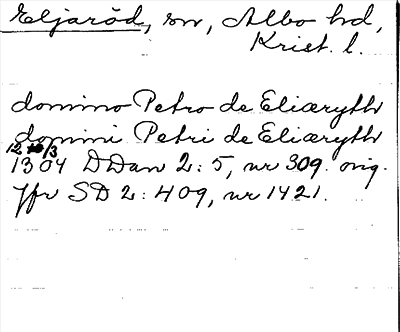 Eljaröd, sn, Albo hd,
Krist. l.
domino Petro de Eliæryth
domini Petri de Eliæryth
12/3
1304 DDan 2:5, nr 309. orig.
Jfr SD 2:409, nr 1421.